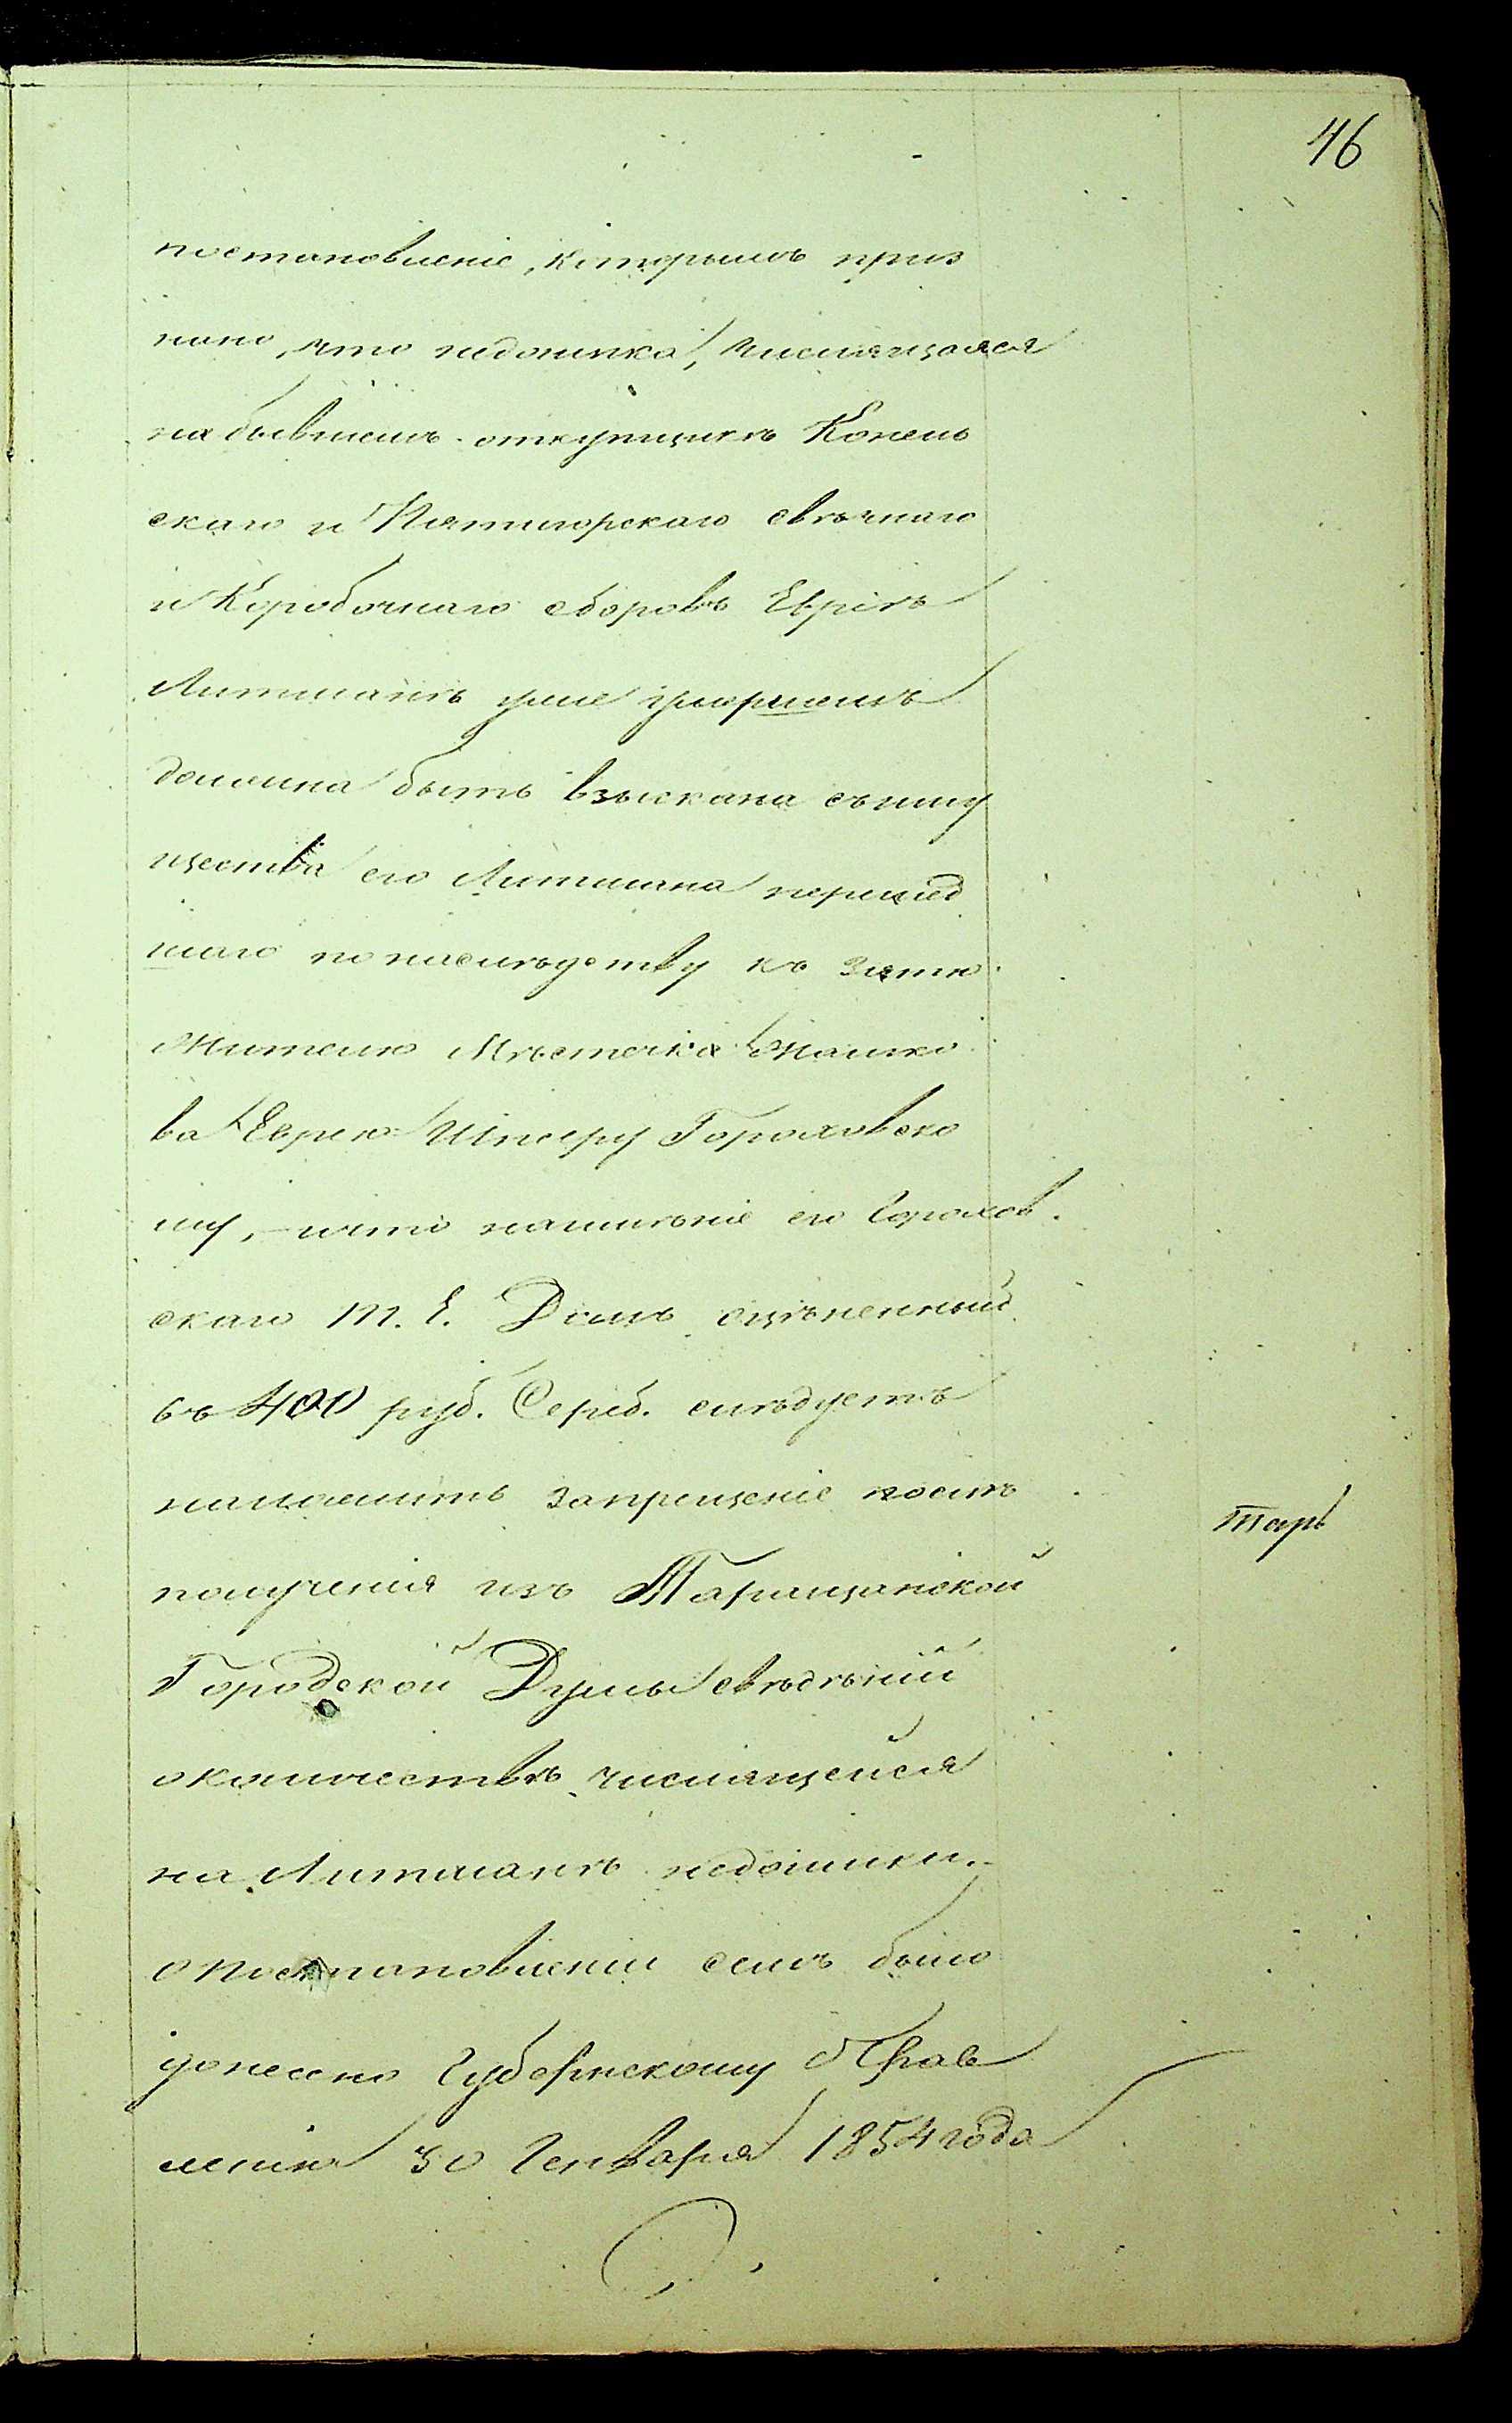 46
постановленіе, которымъ приз
нано, что недоимка, числящаяся
на бывшемъ откупщикѣ Конель
скаго и Пятигорскаго свѣчнаго
и Коробочнаго сборовъ Евреѣ
Литманѣ уже умершемъ
должна быть взыскана съ иму
щества его Литмана перешед
шаго по наслѣдству къ зятю
жителю Мѣстечка Жашко
ва Еврею Шмеру Гороховско
му, – что на имѣніе его Горохов
скаго т. е. Домъ оцѣненный
въ 400 руб. Сереб. слѣдуетъ
наложить запрещеніе послѣ
полученія изъ Таращанской
Тар
Городской Думы свѣдѣній
о количествѣ числящейся
на Литманѣ недоимки. –
о постановленіи семъ было
донесено Губернскому Прав
ленію 30 Генваря 1854 года